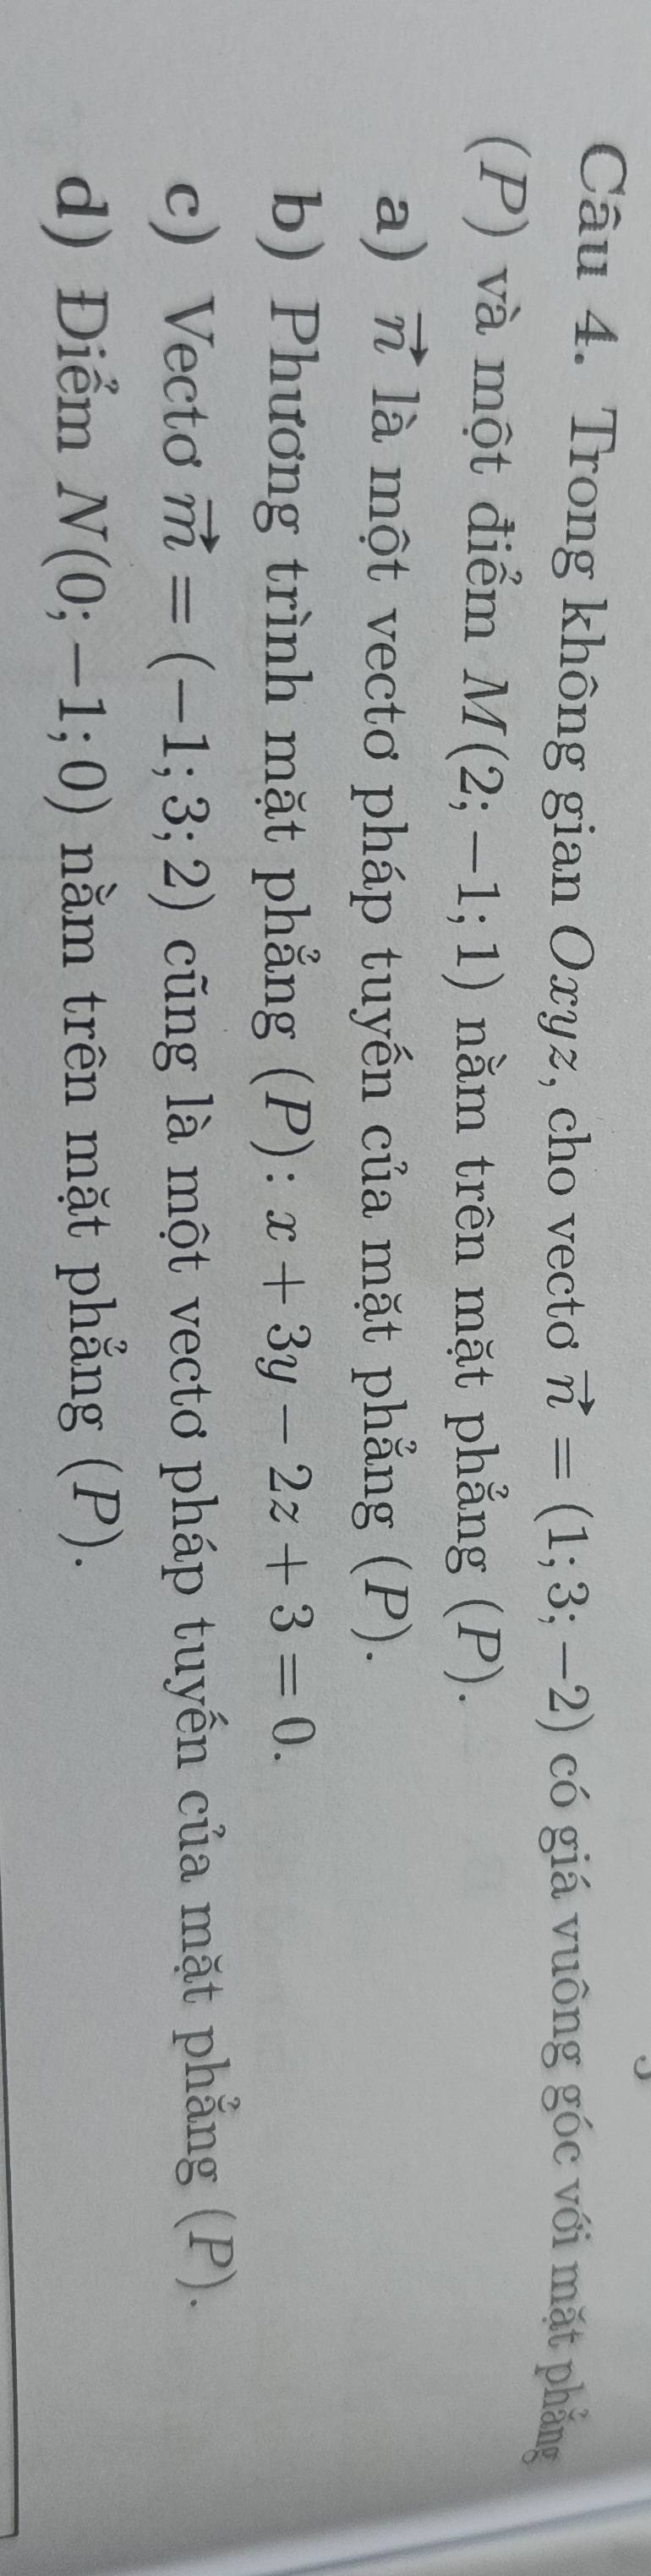 Câu 4. Trong không gian Oxyz, cho vectơ \vec{n} = (1; 3; −2) có giá vuông góc với mặt phẳng
(P) và một điểm M(2; −1; 1) nằm trên mặt phẳng (P).
a) \vec{n} là một vectơ pháp tuyến của mặt phẳng (P).
b) Phương trình mặt phẳng (P): x + 3y − 2z + 3 = 0.
c) Vectơ \vec{m} = (−1; 3; 2) cũng là một vectơ pháp tuyến của mặt phẳng (P).
d) Điểm N(0; −1; 0) nằm trên mặt phẳng (P).